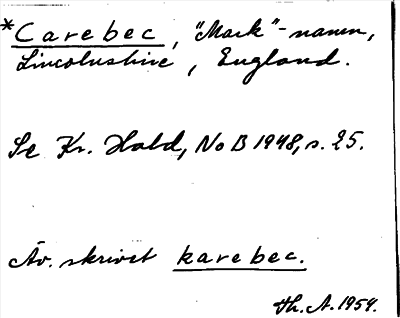 *Carebec, "Mark"-namn,
Lincolnshire, England.
Se Kr. Hald, NoB 1948, s. 25.
Äv. skrivet karebec.
Th. A. 1954.